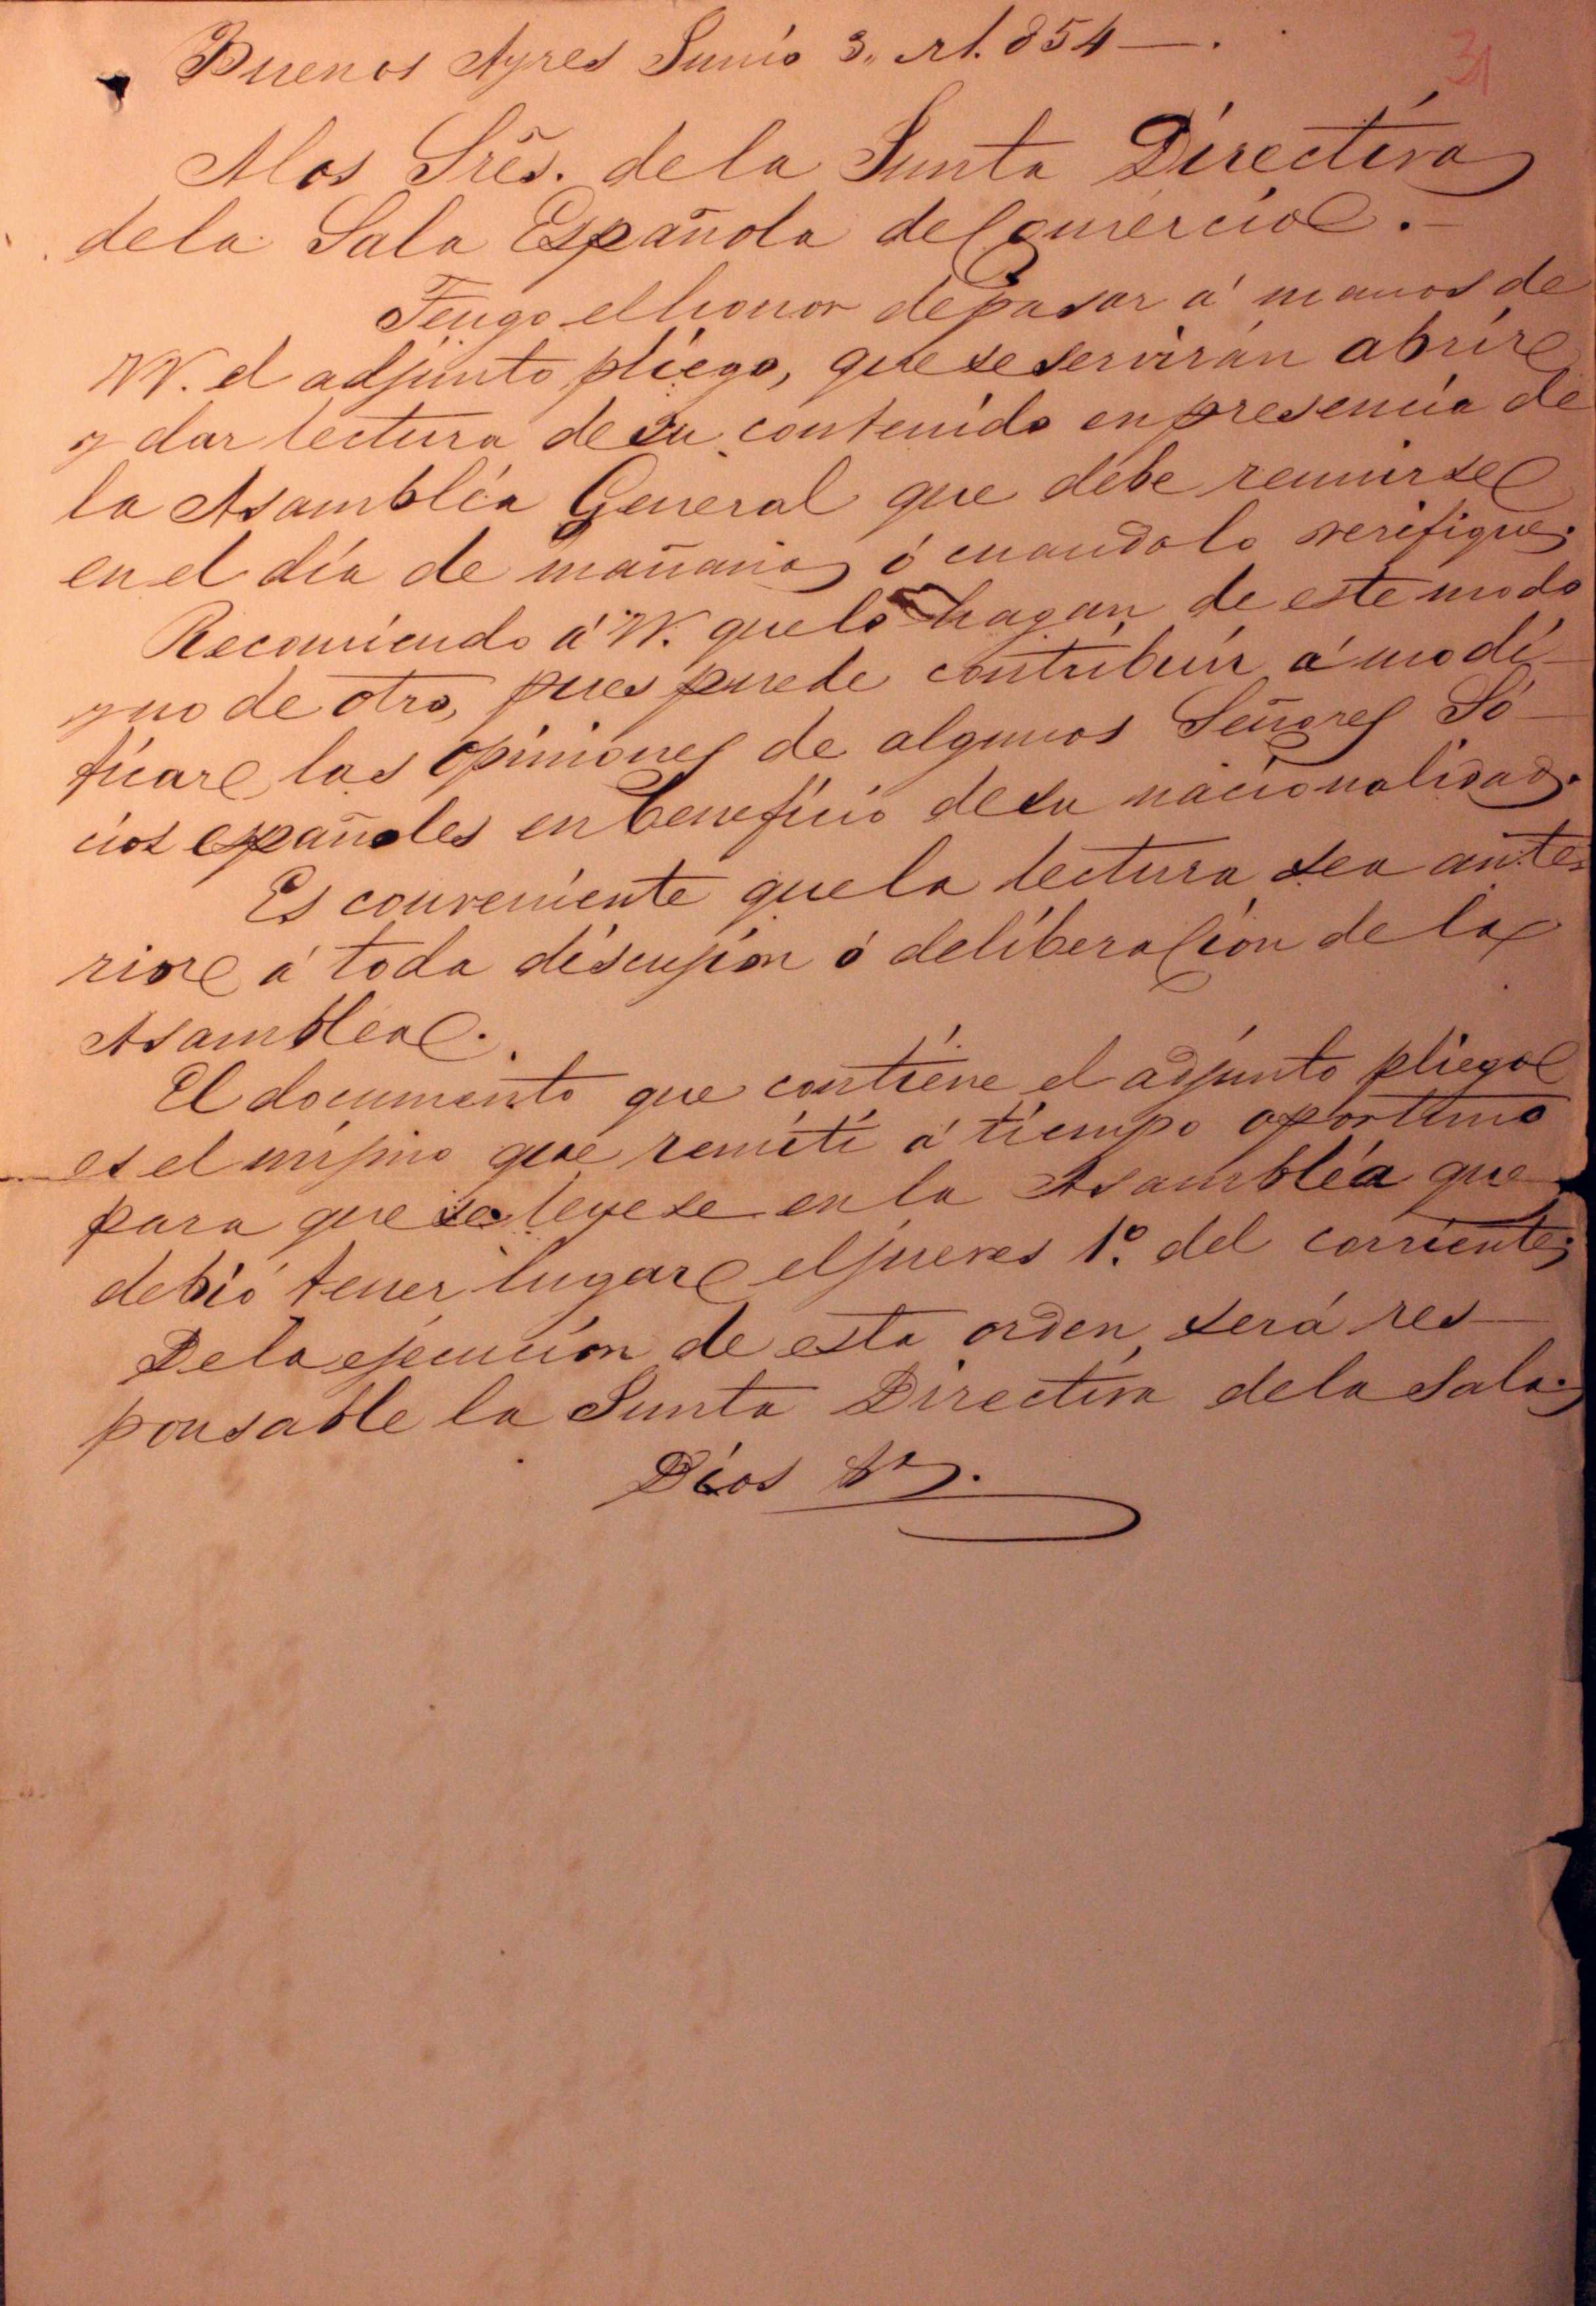 Buenos Ayres Junio 3,, de 1.854—.
31
A los Srẽs. de la Junta Directiva
de la Sala Española de Comercio.-
Tengo el honor de pasar á manos de
VV. el adjunto pliego, que se servirán abrir
y dar lectura de su contenido en presencia de
la Asambléa General que debe reunirse
en el día de mañana, ó cuando lo verifique.
Recomiendo á VV. que lo hagan de este modo
y no de otro, pues puede contribuir á modi-
ficar las opiniones de algunos Señores Só-
cios españoles en beneficio de su nacionalidad.
Es conveniente que la lectura sea ante-
rior á toda discusión ó deliberación de la
Asamblea.
El documento que contiene el adjunto pliego
es el mismo que remití á tiempo oportuno
para que se leyese en la Asambléa que
debió tener lugar el jueves 1º. del corriente;
De la ejecución de esta orden, será res-
ponsable la Junta Directiva de la Sala.
Dios &ª.